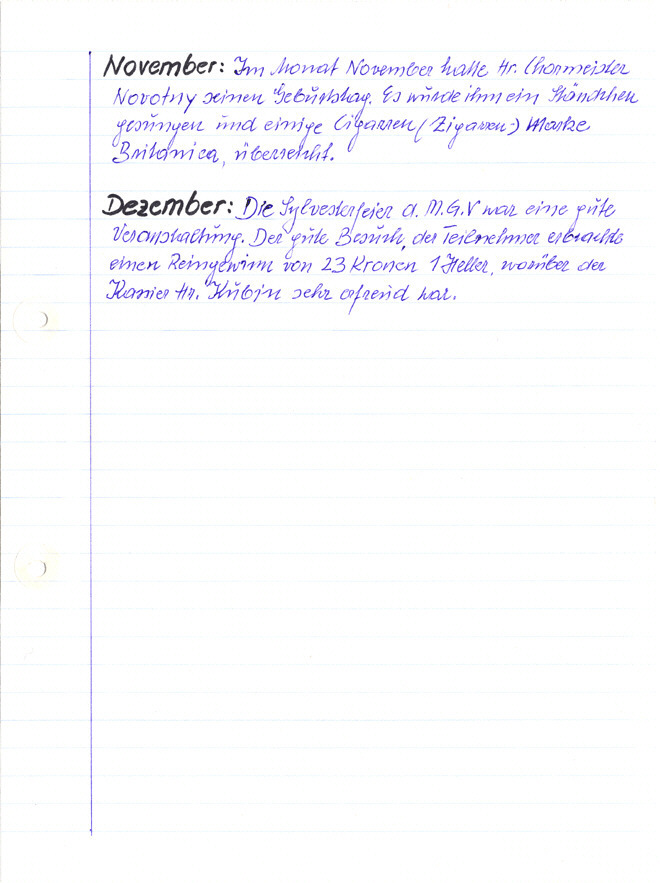 November: Im Monat November hatte Hr. Chormeister
Novotny seinen Geburtstag. Es wurde ihm ein Ständchen
gesungen und einige Cigarren (Zigarren) Marke
Britanica, überreicht.
Dezember: Die Sylvesterfeier d. M.G.V war eine gute
Veranstaltung. Der gute Besuch, der Teilnehmer erbrachte
einen Reingewinn von 23 Kronen 1 Heller, worüber der
Kasier Hr. Kubin sehr erfreud war.